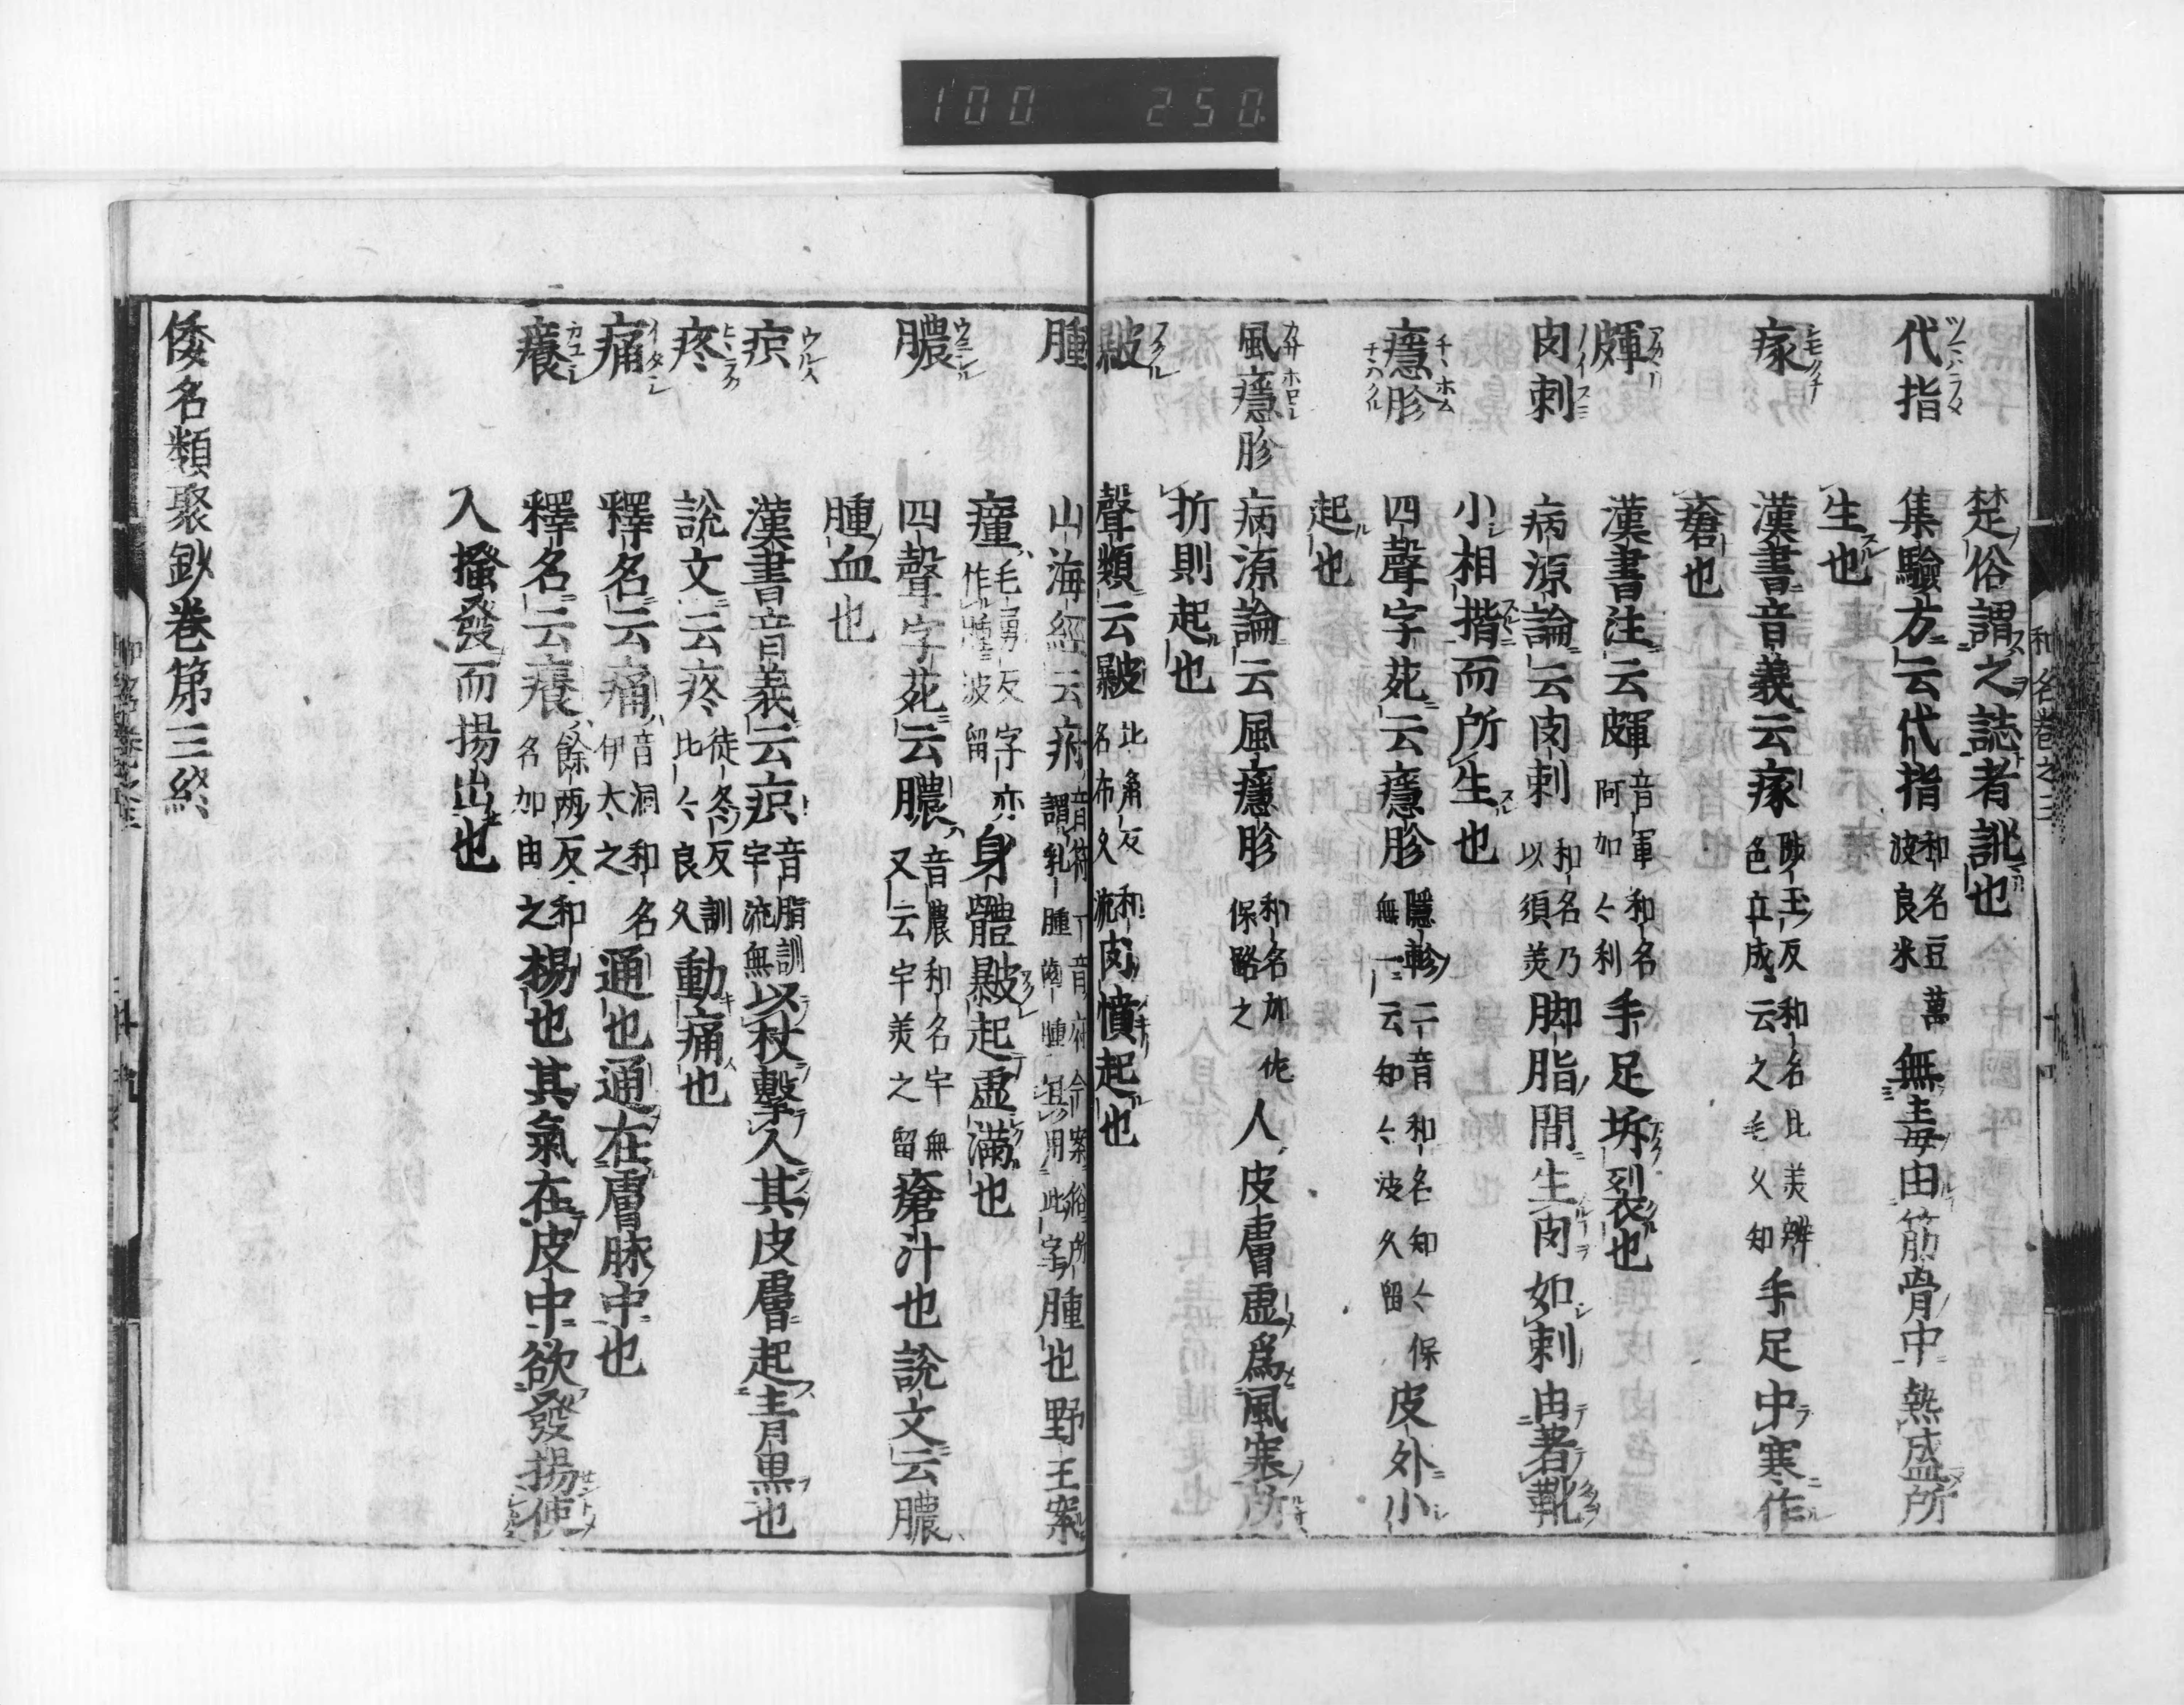 100 250
楚俗謂之誌者訛也
代指 集驗方云代指 和名豆萬波良米 無毒由筋骨中熱盛所
生也
瘃 漢書音義云瘃 陟玉反和名比美辨色立成云之毛久知 手足中寒作
瘡也
皹 漢書注云皹 音軍和名阿加々利 手足坼裂也
肉刺 病源論云肉刺 和名乃以須美 脚脂間生肉如刺由著靴
小相揩而所生也
癮胗 四聲字苑云癮胗 隱軫二音和名知々保無一云知々波久留 皮外小
起也
風癮胗 病源論云風癮胗 和名加佐保路之 人皮膚虛爲風寒所
折則起也
皺 聲類云皺 比角反和名布久流 肉憤起也
腫 山海經云疛 音符謂乳腫 腫也野王案
瘇 毛勇反字亦作腫波留 身體皺起虛滿也
膿 四聲字苑云膿 音農和名宇無又云宇美之留 瘡汁也說文云膿
腫血也
𤵝 漢書音義云𤵝 音脂訓宇流無 以杖擊人其皮膚起靑黒也
疼 說文云疼 徒冬反訓比々良久 動痛也
痛 釋名云痛 音洞和名伊太之 通也通在膚脉中也
癢 釋名云癢 餘兩反和名加由之 楊也其氣在皮中欲發揚使
人搔發而揚出也
倭名類聚鈔卷第三終
和名卷之三